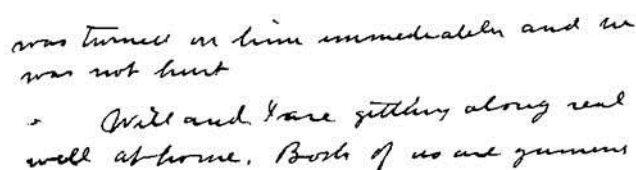 was turned on him immediately and he
was not hurt
Will and I are getting along real
well at home. Both of us are gunners